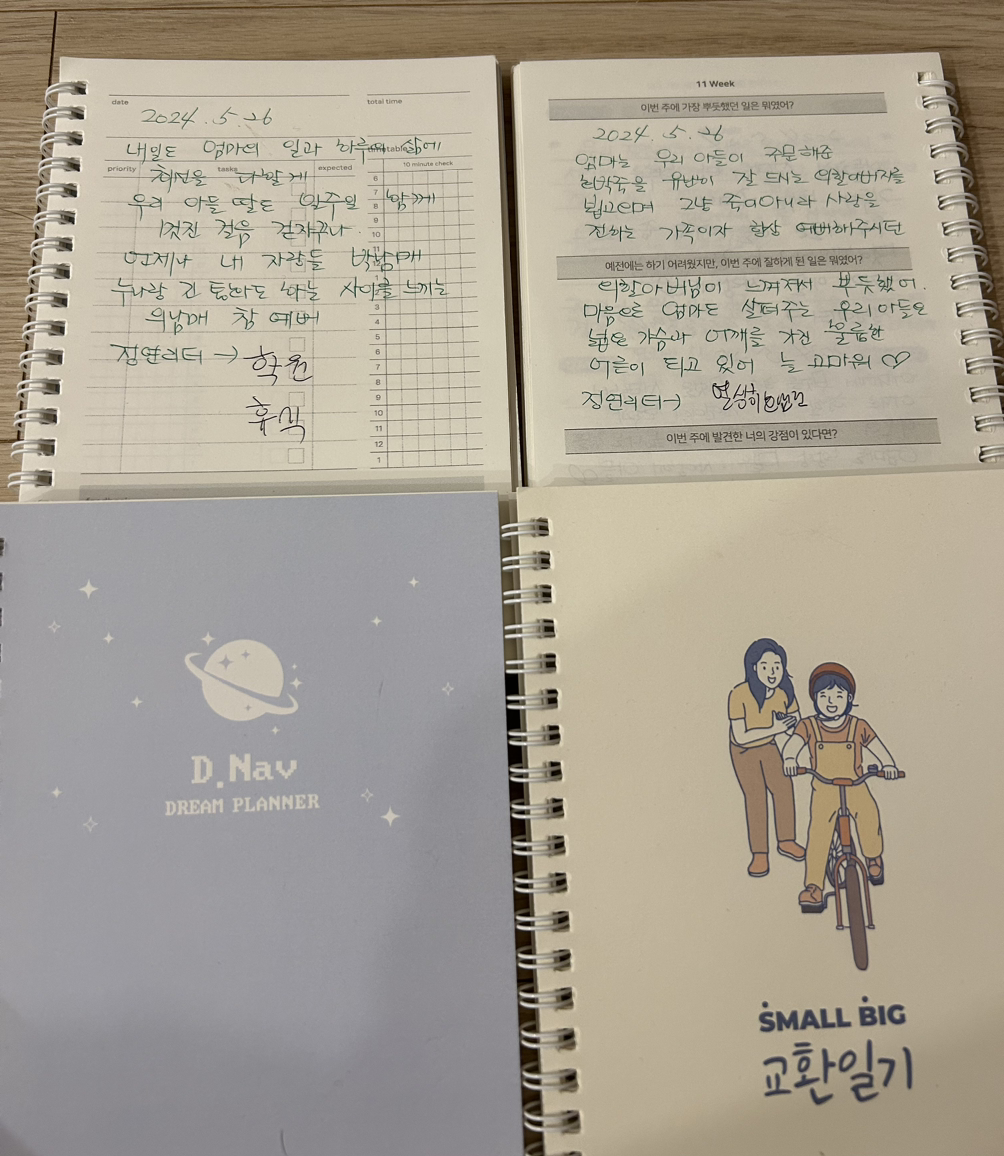 date
total time
2024.5.26
내일도 엄마의 일과 하루에 삶에
timetable
10 minute check
priority
tasks
expected
최선을 다할게
우리 아들 딸도 일주일 함께
멋진 걸음 걷자꾸나.
언제나 내 자랑들 박남매
누나랑 긴 통화도 하는 사이를 느끼는
의남매 참 예뻐
정연리더 → 학원
휴식
6
7
8
9
10
11
12
1
3
4
5
6
7
8
9
10
11
12
1
11 Week
이번 주에 가장 뿌듯했던 일은 뭐였어?
2024.5.26
엄마는 우리 아들이 주문해준
호박죽을 유난히 잘 드시는 외할아버지를
뵙고오며 그냥 죽이아니라 사랑을
전하는 가족이자 항상 예뻐해주시던
예전에는 하기 어려웠지만, 이번 주에 잘하게 된 일은 뭐였어?
외할아버님이 느껴져서 뿌듯했어.
마음으로 엄마도 살펴주는 우리 아들은
넓은 가슴과 어깨를 가진 훌륭한
어른이 되고 있어 늘 고마워 ♡
정연리더→
이번 주에 발견한 너의 강점이 있다면?
D.Nav
DREAM PLANNER
SMALL BIG
교환일기